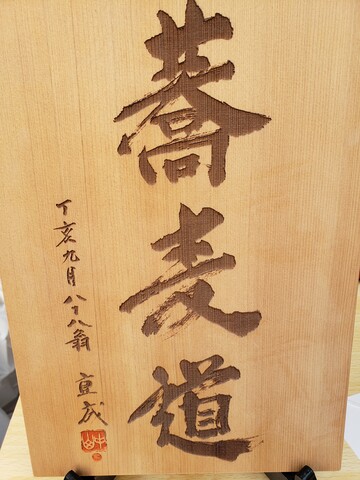 蕎麦道
丁亥九月八十八翁 直成